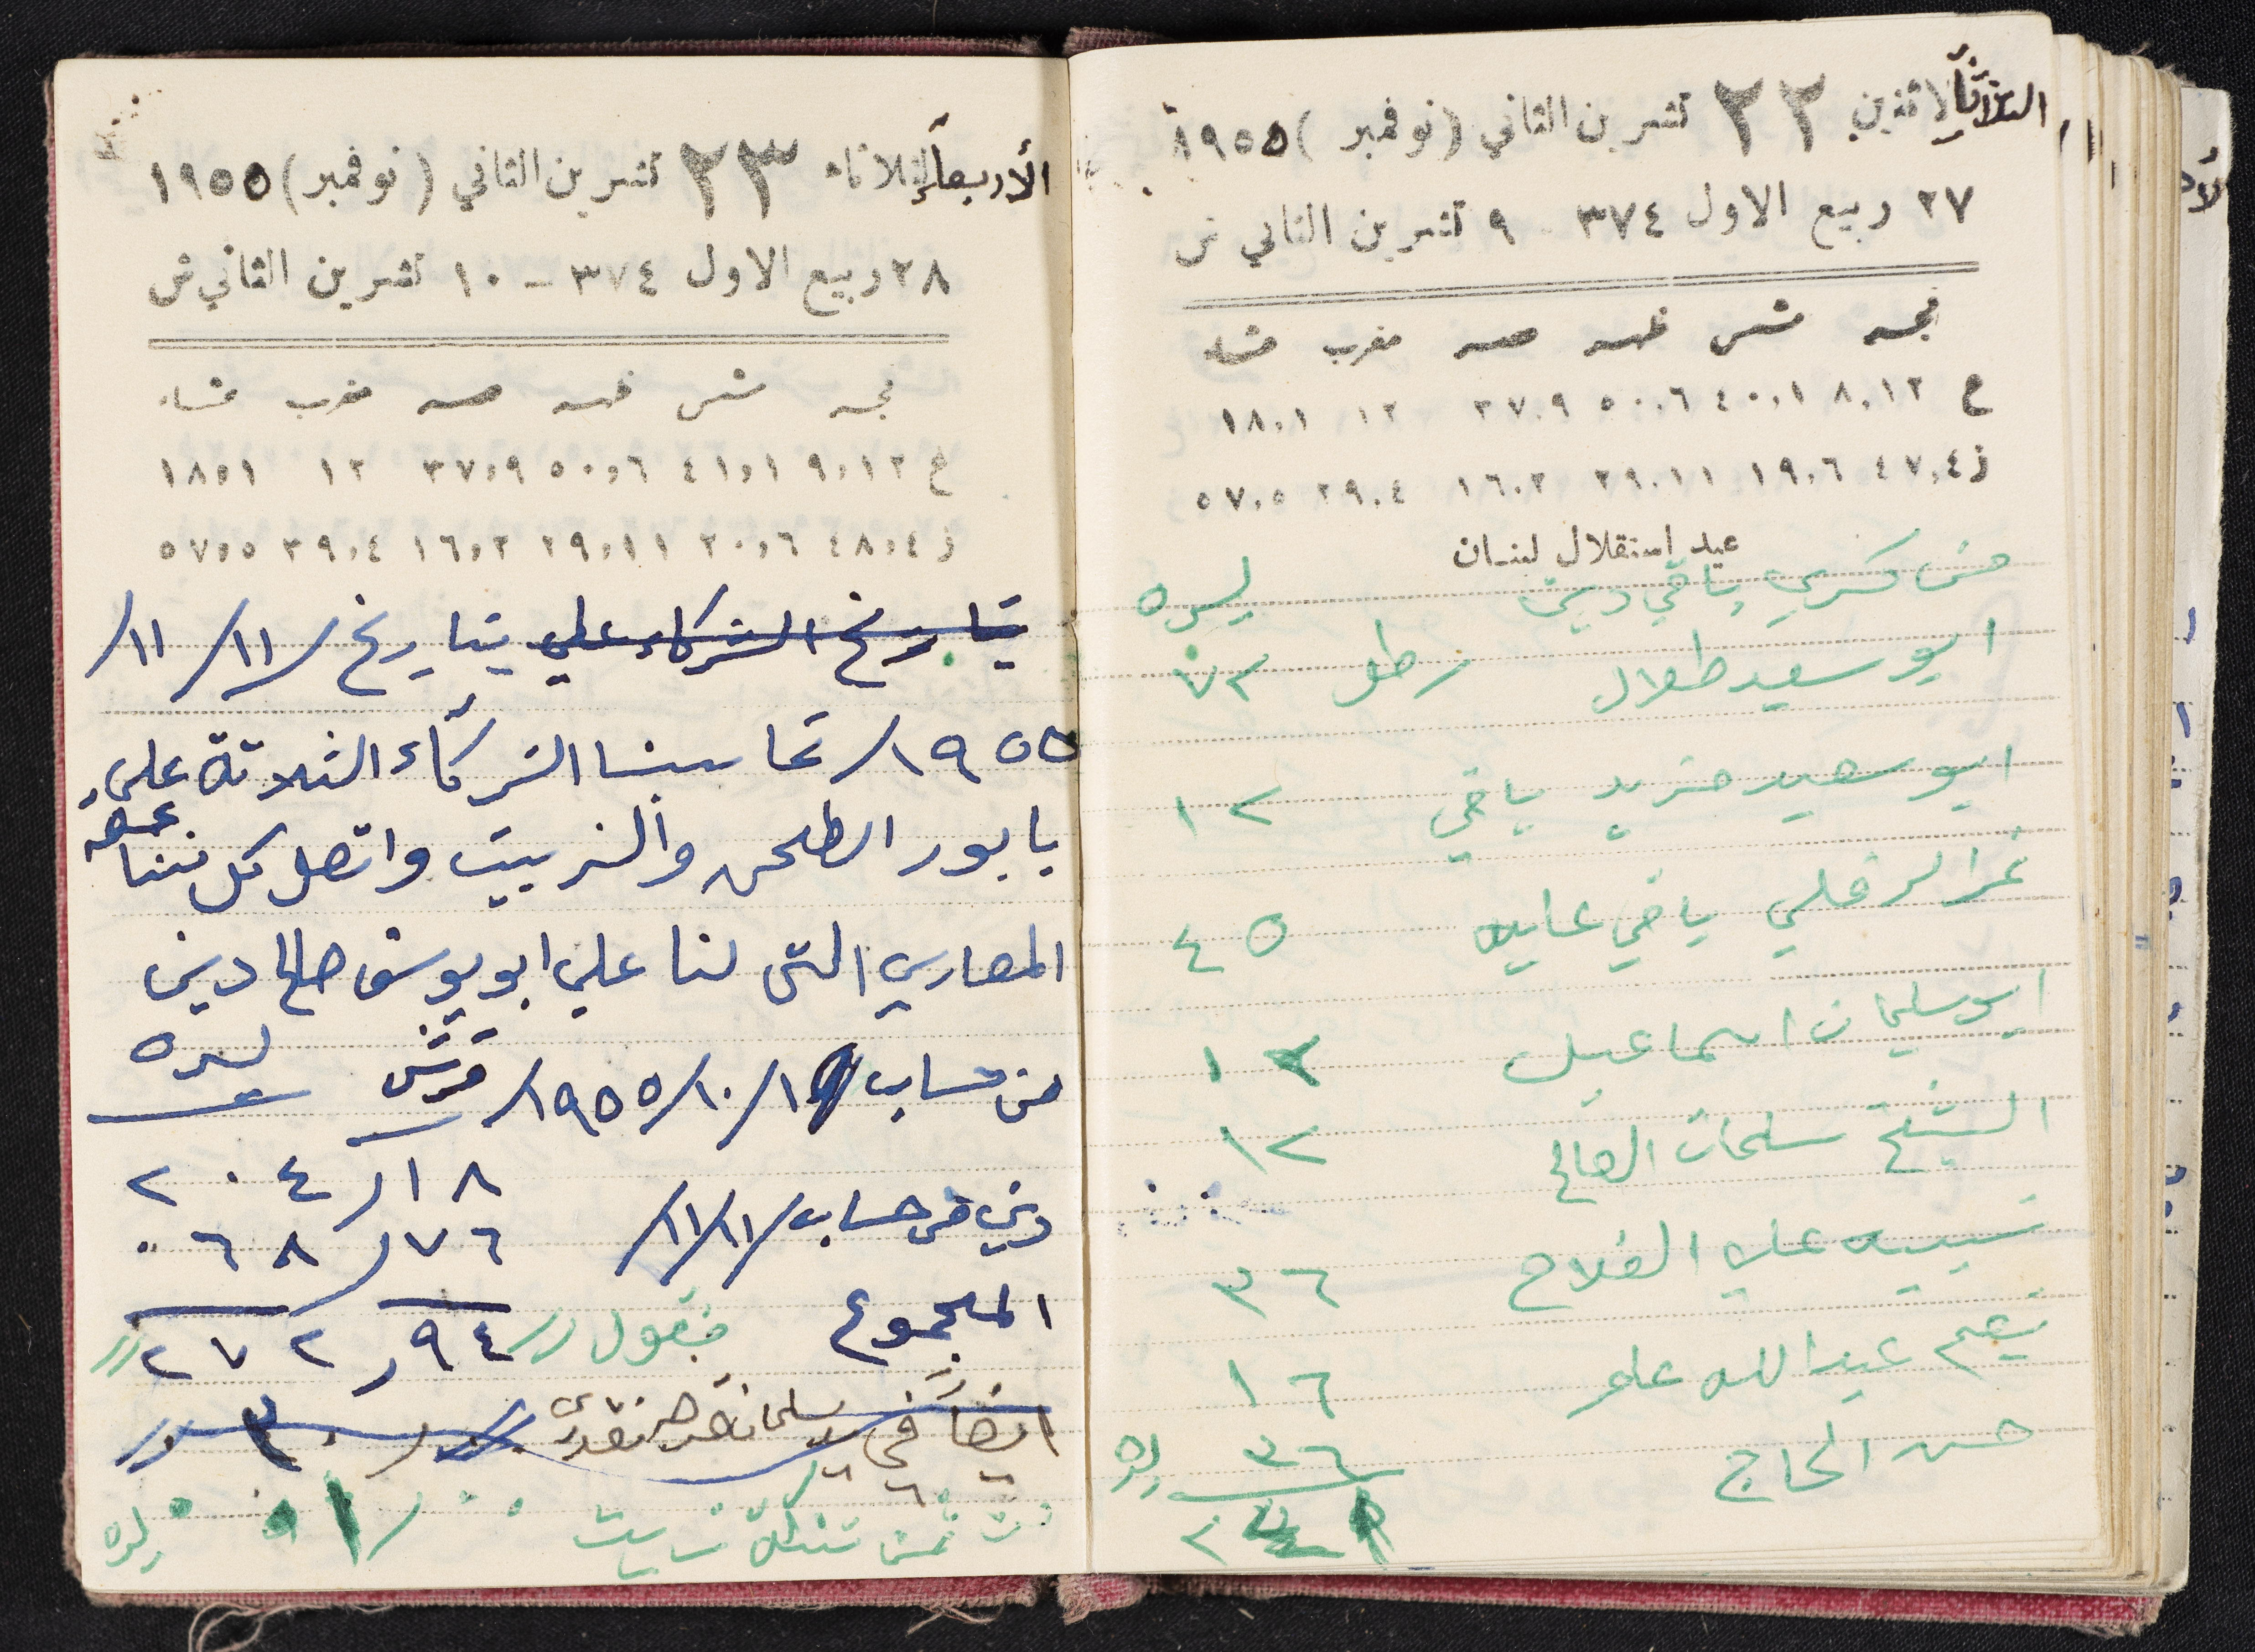 الثلاثاء الاثنين ٢٢ تشرين الثاني (نوفمبر) ١٩٥٥
٢٧ ربيع الاول ٣٧٤ - ٩ تشرين الثاني ش
فجر شمس ظهر عصر مغرب عشاء
ع ٨,١٢ ٤٠,١ ٥٠,٦ ٣٧,٩ ١٢ ١٨,١
ز ٤٧,٤ ١٩,٦ ٢٩,١١ ١٦,٢ ٣٩,٤ ٥٧,٥
عيد استقلال لبنان
باقي دين ليره
ابو سعيد طلال رطل ٧٢
ابو سعيد مزيد باقي ١٢
باقي عليه ٤٥
ابو سليمان اسماعيل ١٢
الشيخ سلمان الصالح ١٢
نسيبه علي الفلاح ٣٦
عبدالله علم ١٦
حسن الحاج ٣٦ ليره
الأربعاء الثلاثاء ٢٣ تشرين الثاني (نوفمبر) ١٩٥٥
٢٨ ربيع الاول ٣٧٤ - ١٠ تشرين الثاني ش
فجر شمس ظهر عصر مغرب عشاء
ع ٩,١٢ ٤١,١ ٥٠,٦ ٣٧,٩ ١٢ ١٨,١
ز ٤٨,٤ ٢٠,٦ ٢٩,١١ ١٦,٢ ٣٩,٤ ٥٧,٥
بتاريخ الشركاء على بتاريخ /١١/١١/
١٩٥٥/ تحاسبنا الشركاء الثلاثة على
بابور الطحن والزيت واتصل كل مننا حصه
المصاري التى لنا علي ابو يوسف صالح دين
من حساب ١٩٥٥/١٠/١٩/ قرش ليره
١٨ر٢٠٤
دين من حساب /١١/١١/ ٧٦ر٠٦٨
المجموع فقول // ٩٤ر٢٧٢ //
ايضاً في نقدي
ثمن تنكة زيت ليره